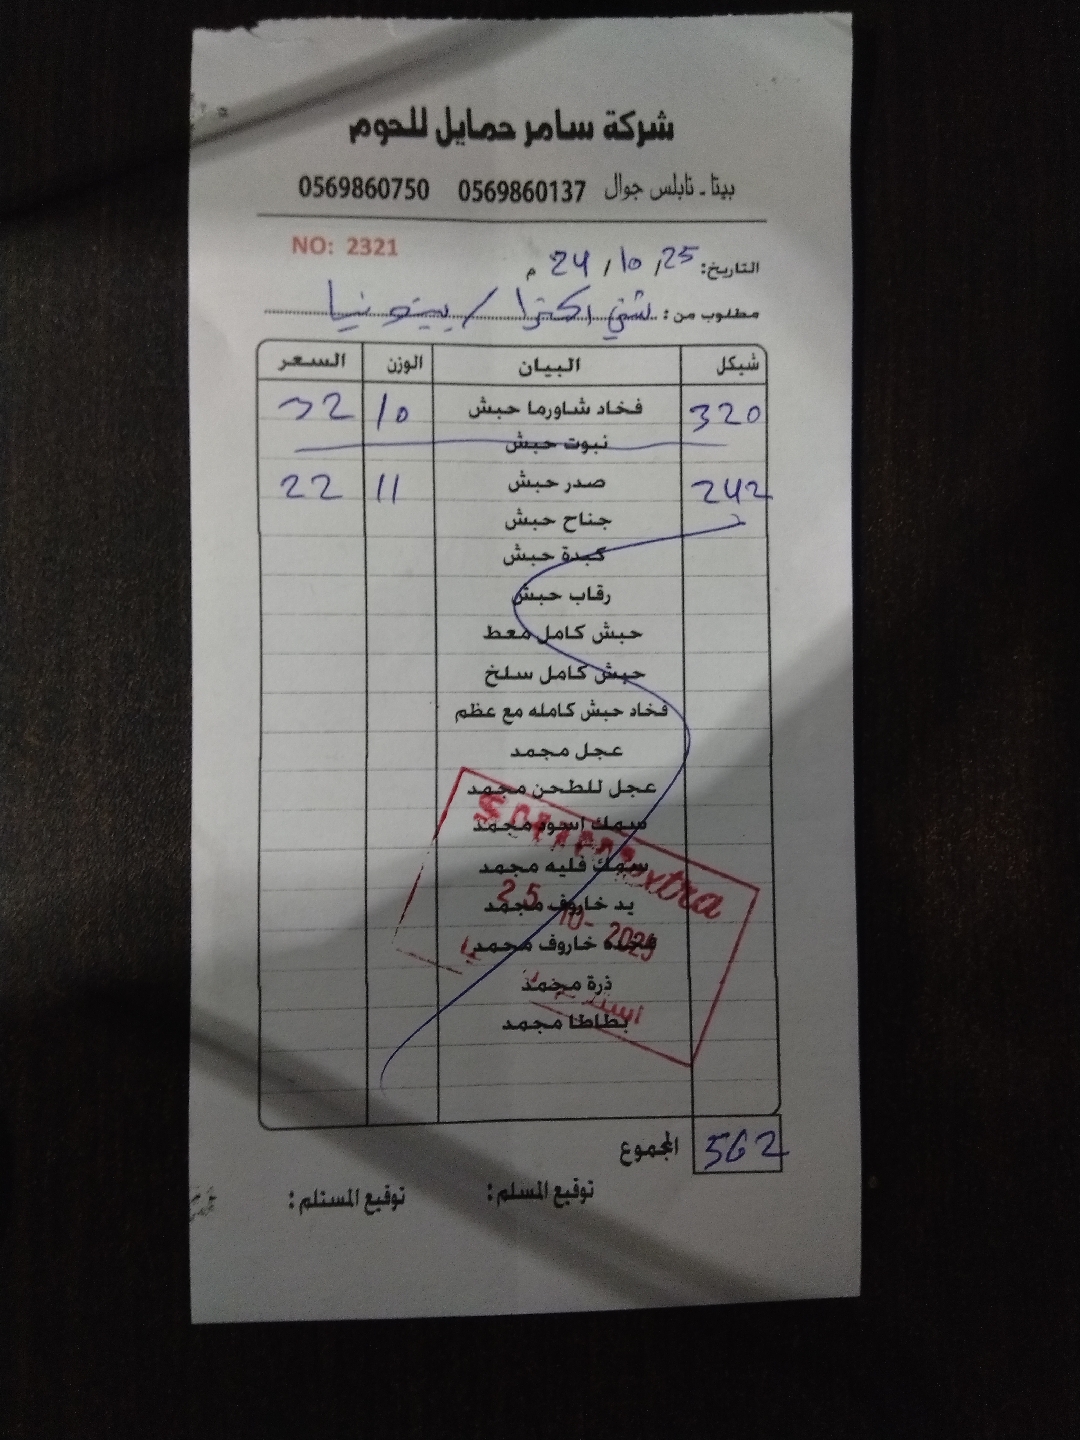 شركة سامر حمايل للحوم
بيتا - نابلس جوال 0569860137 0569860750
NO: 2321
التاريخ: 25 / 10 / 24 م
مطلوب من: شني اكترا / بيتونيا
شيكل البيان الوزن السعر
320 فخاد شاورما حبش 10 32
نبوت حبش
242 صدر حبش 11 22
جناح حبش
كبدة حبش
رقاب حبش
حبش كامل معط
حبش كامل سلخ
فخاد حبش كامله مع عظم
عجل مجمد
عجل للطحن مجمد
سمك اسود مجمد
سمك فليه مجمد
extra
يد خاروف مجمد
25 -10- 2025
فخده خاروف مجمد
ذرة مجمد
بطاطا مجمد
المجموع 562
توقيع المسلم : توقيع المستلم :